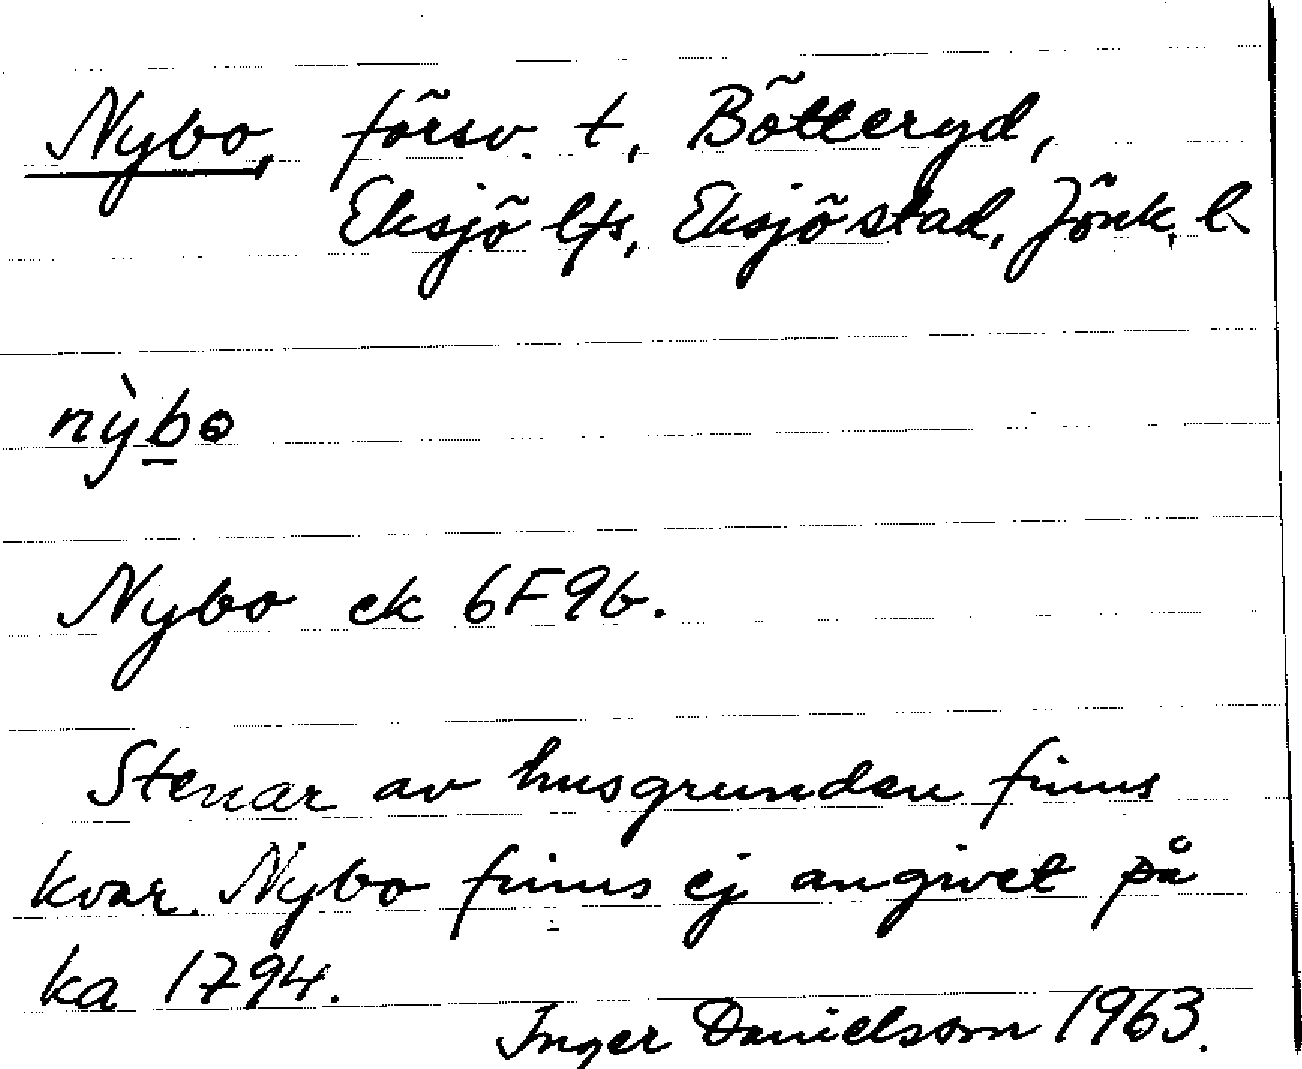 Nybo, försv. t, Bötteryd,
Eksjö lfs, Eksjö stad, Jönk. l.
nỳbo
Nybo ek 6F9b.
Stenar av husgrunden finns
kvar. Nybo finns ej angivet på
ka 1794.
Inger Danielsson 1963.